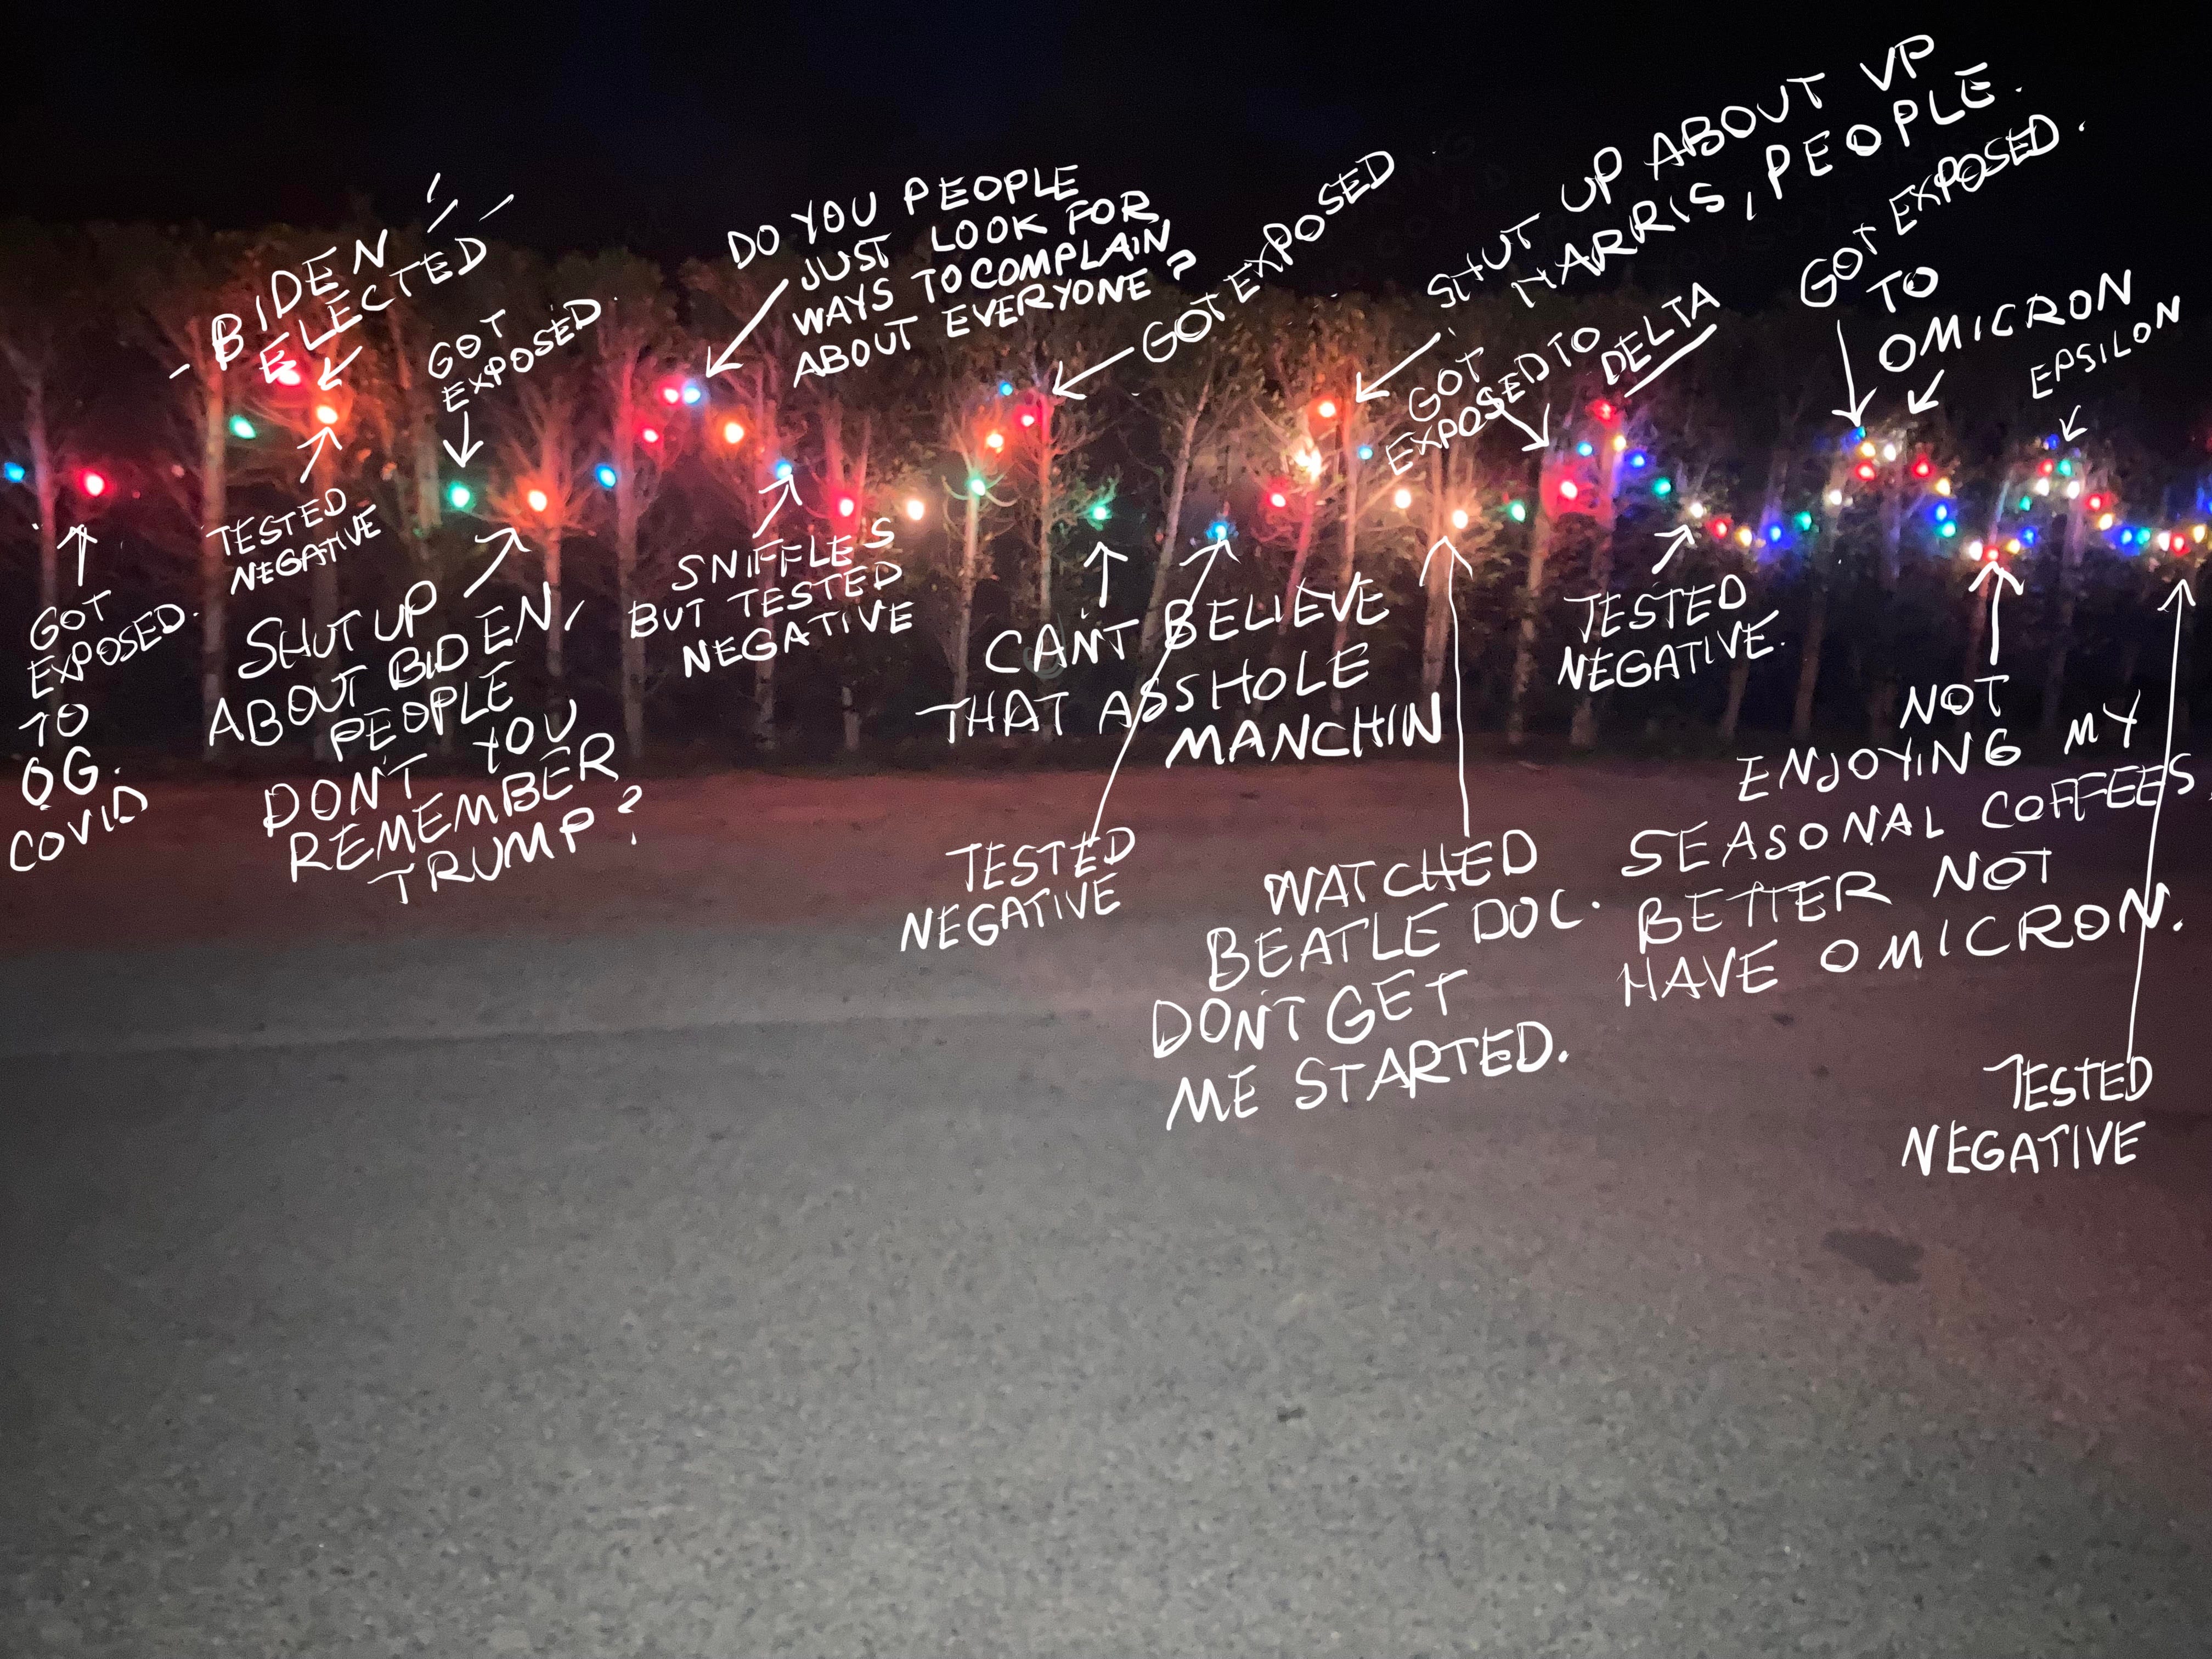 GOT
EXPOSED.
TO
OG.
COVID
BIDEN
ELECTED
TESTED
NEGATIVE
GOT
EXPOSED.
SHUT UP
ABOUT BIDEN,
PEOPLE
DON'T YOU
REMEMBER
TRUMP?
DO YOU PEOPLE
JUST LOOK FOR
WAYS TO COMPLAIN
ABOUT EVERYONE?
SNIFFLES
BUT TESTED
NEGATIVE
GOT EXPOSED
CAN'T BELIEVE
THAT ASSHOLE
MANCHIN
TESTED
NEGATIVE
SHUT UP ABOUT VP
HARRIS, PEOPLE.
WATCHED
BEATLE DOC.
DON'T GET
ME STARTED.
GOT
EXPOSED TO
DELTA
TESTED
NEGATIVE.
GOT EXPOSED.
TO
OMICRON
EPSILON
NOT
ENJOYING MY
SEASONAL COFFEES,
BETTER NOT
HAVE OMICRON.
TESTED
NEGATIVE